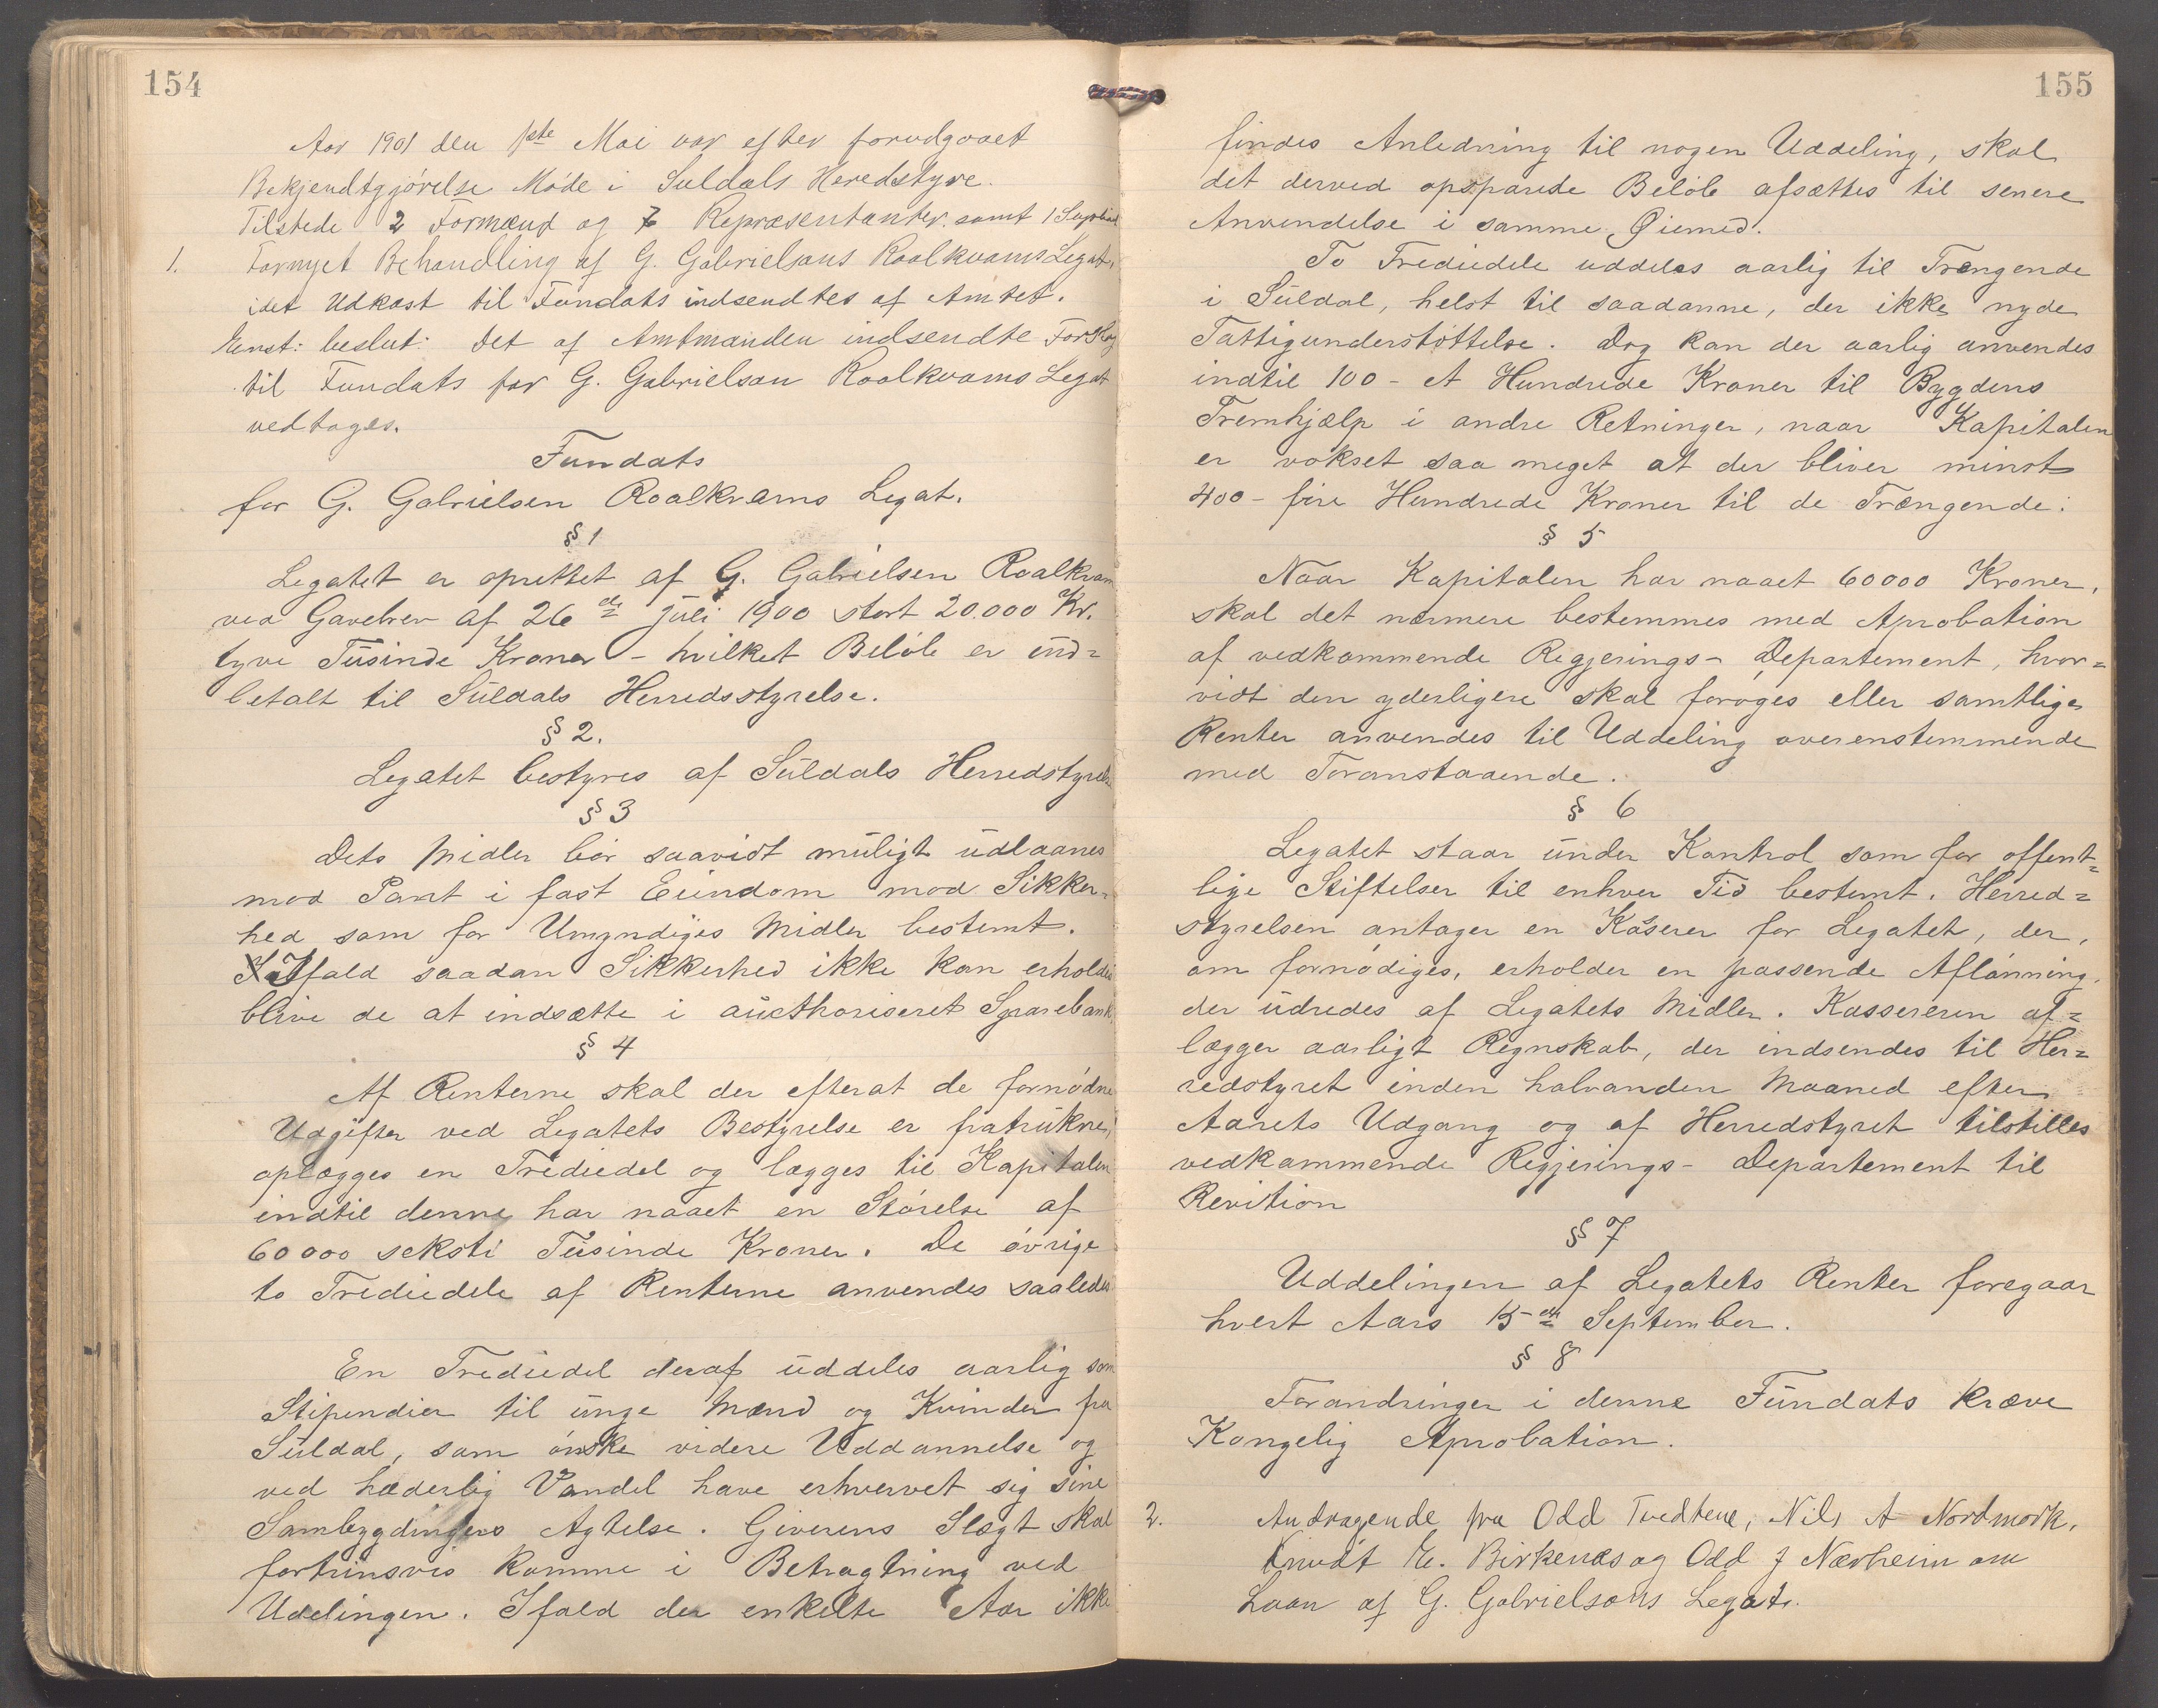 154
Aar 1901 den 1ste Mai var efter forudgaaet
Bekjendtgjørelse Møde i Suldals Heredstyre.
Tilstede 2 Formænd og 7 Repræsentanter samt 1
1. Fornyet Behandling af G. Gabrielsons Roalkvams Legat,
idet Udkast til Fundats indsendtes af Amtet.
Enst: beslut: Det af Amtmanden indsendte Forslag
til Fundats for G. Gabrielson Roalkvams Legat
vedtages.
Fundats
for G. Gabrielsen Roalkvams Legat.
§ 1
Legatet er oprettet af G. Gabrielsen Roalkvam
ved Gavebrev af 26de juli 1900 stort 20.000 Kr.
tyve Tusinde Kroner - hvilket Beløb er ind=
betalt til Suldals Herredsstyrelse.
§ 2.
Legatet bestyres af Suldals Herredstyrelse
§ 3
Dets Midler bør saavidt muligt udlaanes
mod Pant i fast Eiendom mod Sikker=
hed som for Umyndiges Midler bestemt.
Ifald saadan Sikkerhed ikke kan erholdes
blive de at indsætte i aucthoriseret Sparebank.
§ 4
Af Renterne skal der efterat de fornødne
Udgifter ved Legatets Bestyrelse er fratrukne,
oplægges en Trediedel og lægges til Kapitalen
indtil denne har naaet en Størelse af
60000 seksti Tusinde Kroner. De øvrige
to Trediedele af Renterne anvendes saaledes
En Trediedel deraf uddeles aarlig som
Stipendier til unge Mænd og Kvinder fra
Suldal, som ønske videre Uddannelse og
ved hæderlig Vandel have erhvervet sig sine
Sambygdingers Agtelse. Giverens Slægt skal
fortrinsvis komme i Betragtning ved
Uddelingen. Ifald der enkelte Aar ikke
155
findes Anledning til nogen Uddeling, skal
det derved opsparede Beløb afsættes til senere
Anvendelse i samme Øiemed.
To Trediedele uddeles aarlig til Trængende
i Suldal, helst til saadanne, der ikke nyde
Fattigunderstøttelse. Dog kan der aarlig anvendes
indtil 100 - et Hundrede Kroner til Bygdens
Fremhjælp i andre Retninger, naar Kapitalen
er vokset saa meget at der bliver minst
400 - fire Hundrede Kroner til de Trængende.
§ 5
Naar Kapitalen har naaet 60000 Kroner,
skal det nærmere bestemmes med Aprobation
af vedkommende Regjerings- Departement, hvor=
vidt den yderligere skal forøges eller samtlige
Renter anvendes til Uddeling overenstemmende
med Foranstaaende.
§ 6
Legatet staar under Kontrol som for offent=
lige Stiftelser til enhver Tid bestemt. Herred=
styrelsen antager en Kaserer for Legatet, der,
om fornødiges, erholder en passende Aflønning,
der udredes af Legatets Midler. Kassereren af=
lægger aarligt Regnskab, der indsendes til Her=
redstyret inden halvanden Maaned efter
Aarets Udgang og af Herredstyret tilstilles
vedkommende Regjerings- Departement til
Revition
§ 7
Uddelingen af Legatets Renter foregaar
hvert Aars 15de September.
§ 8
Forandringer i denne Fundats kræve
Kongelig Aprobation.
2. Andragende fra Odd Tvedtene, Nils A Nordmork,
Knudt E. Birkenes og Odd J Nærheim om
Laan af G. Gabrielsons Legat.